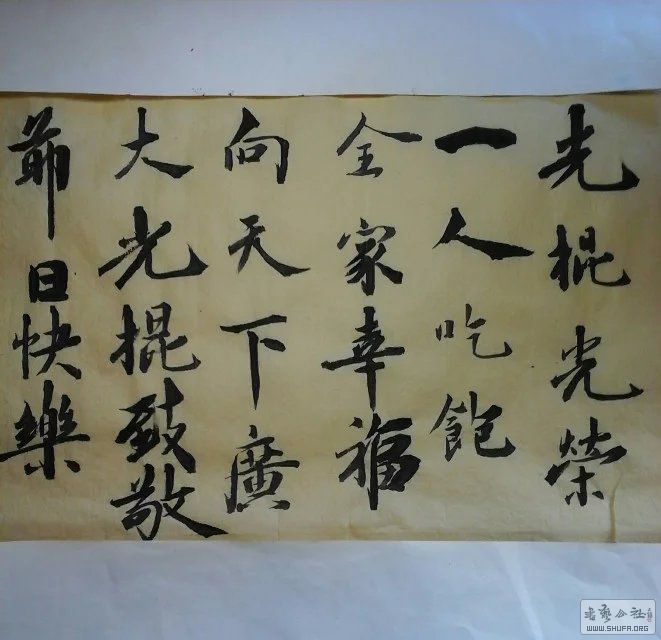 光棍光榮
一人吃飽
全家幸福
向天下廣
大光棍致敬
節日快樂
書藝公社
WWW.SHUFA.ORG